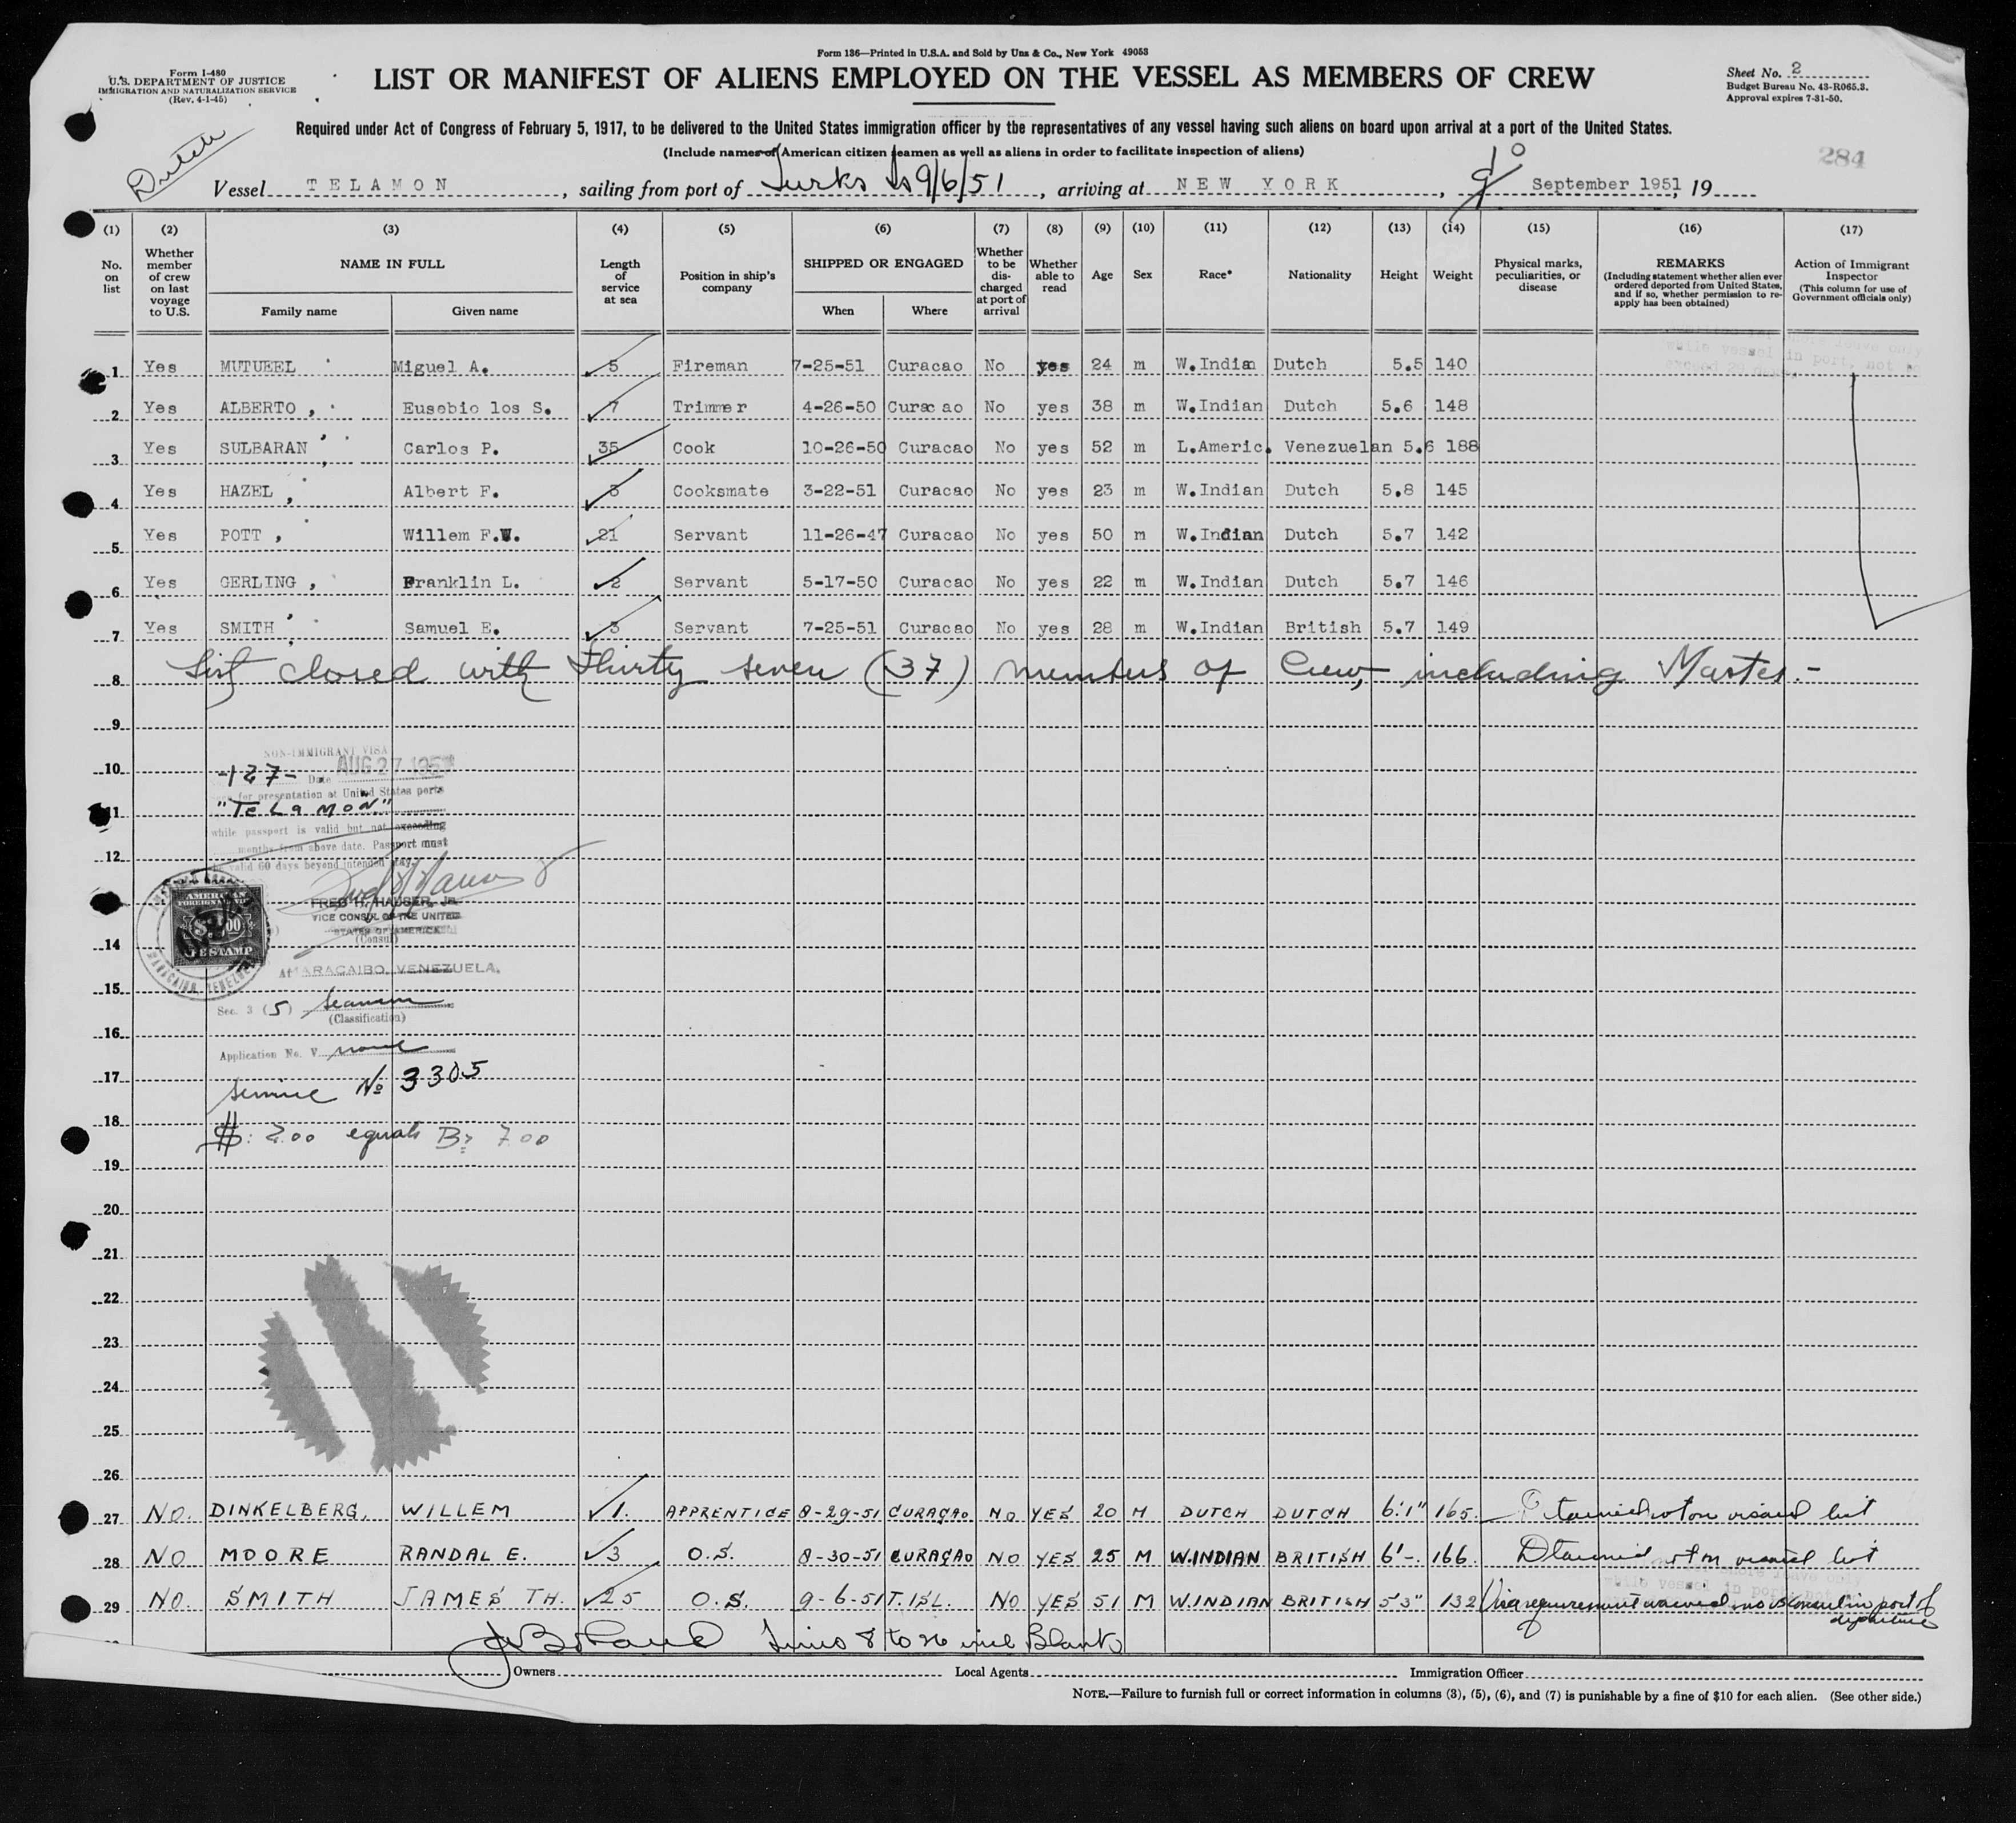 Form 136—Printed in U.S.A. and Sold by Unz & Co., New York 49053
Form I-480
U.S. DEPARTMENT OF JUSTICE
IMMIGRATION AND NATURALIZATION SERVICE
(Rev. 4-1-45)
LIST OR MANIFEST OF ALIENS EMPLOYED ON THE VESSEL AS MEMBERS OF CREW
Sheet No. 2
Budget Bureau No. 43-R065.3.
Approval expires 7-31-50.
Required under Act of Congress of February 5, 1917, to be delivered to the United States immigration officer by the representatives of any vessel having such aliens on board upon arrival at a port of the United States.
(Include names of American citizen seamen as well as aliens in order to facilitate inspection of aliens)
284
Dutch
Vessel TELAMON, sailing from port of Turks Is 9/6/51, arriving at NEW YORK, 10 September 1951, 19
(1) (2) (3) (4) (5) (6) (7) (8) (9) (10) (11) (12) (13) (14) (15) (16) (17)
No. on list
Whether member of crew on last voyage to U.S.
NAME IN FULL
Family name Given name
Length of service at sea
Position in ship's company
SHIPPED OR ENGAGED
When Where
Whether to be discharged at port of arrival
Whether able to read
Age Sex Race* Nationality Height Weight
Physical marks, peculiarities, or disease
REMARKS
(Including statement whether alien ever ordered deported from United States, and if so, whether permission to reapply has been obtained)
Action of Immigrant Inspector
(This column for use of Government officials only)
while vessel in port, not to
1 Yes MUTUEEL Miguel A. 5 Fireman 7-25-51 Curacao No yes 24 m W.India Dutch 5.5 140
2 Yes ALBERTO, Eusebio los S. 7 Trimmer 4-26-50 Curacao No yes 38 m W.Indian Dutch 5.6 148
3 Yes SULBARAN Carlos P. 35 Cook 10-26-50 Curacao No yes 52 m L.Americ. Venezuelan 5.6 188
4 Yes HAZEL, Albert F. 3 Cooksmate 3-22-51 Curacao No yes 23 m W.Indian Dutch 5.8 145
5 Yes POTT, Willem F.W. 21 Servant 11-26-47 Curacao No yes 50 m W.Indian Dutch 5.7 142
6 Yes GERLING, Franklin L. 2 Servant 5-17-50 Curacao No yes 22 m W.Indian Dutch 5.7 146
7 Yes SMITH Samuel E. 3 Servant 7-25-51 Curacao No yes 28 m W.Indian British 5.7 149
8 List closed with Thirty seven (37) members of Crew, including Master.-
9
NON-IMMIGRANT VISA
10 -127- Date AUG 27 195
for presentation at United States ports
11 "TELAMON"
while passport is valid but not exceeding
months from above date. Passport must
12 be valid 60 days beyond intended stay.
13
FRED H. HAUSER, Jr.
VICE CONSUL OF THE UNITED
STATES OF AMERICA
(Consul)
AMERICAN
FOREIGN SERVICE
$2.00
FEE STAMP
MARACAIBO, VENEZUELA
14
At MARACAIBO, VENEZUELA.
15
Sec. 3 (5) Seaman
(Classification)
16
Application No. V none
17 Service No 3305
18 $: 2.00 equals Bs 7.00
19
20
21
22
23
24
25
26
27 NO. DINKELBERG, WILLEM 1. APPRENTICE 8-29-51 CURAÇAO NO YES 20 M DUTCH DUTCH 6'1" 165. Detained not on visaed list
28 NO MOORE RANDAL E. 3 O.S. 8-30-51 CURAÇAO NO YES 25 M W.INDIAN BRITISH 6'-. 166 Detained not on visaed list
while vessel in port, not
29 NO. SMITH JAMES TH. 25 O.S. 9-6-51 T.ISL. NO YES 51 M W.INDIAN BRITISH 5'3" 132 Visa requirement waived no US Consul in port of departure
Lines 8 to 26 incl Blank
Owners Local Agents Immigration Officer
NOTE.—Failure to furnish full or correct information in columns (3), (5), (6), and (7) is punishable by a fine of $10 for each alien. (See other side.)